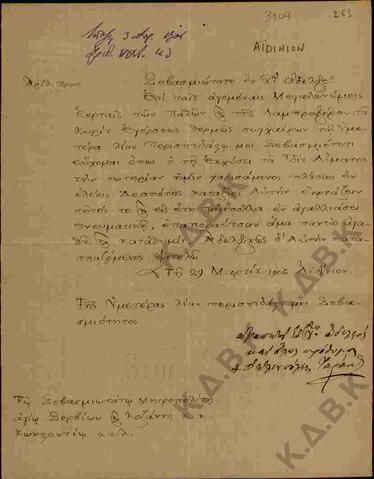 3904 263
ΑΪΔΙΝΙΟΝ
Σεβασμιώτατε ἐν Χῷ ἀδελφέ·
Ἐπὶ ταῖς ἀγομέναις Μεγαλωνύμοις
Ἑορταῖς τῶν Παθῶν καὶ τῆς Λαμπροφόρου τοῦ
Κυρίου Ἐγέρσεως θερμῶς συγχαίρων τῇ Ὑμε-
τέρᾳ λίαν Περισπουδάστῳ μοι Σεβασμιότητι
εὔχομαι ὅπως ὁ τῇ ἐκχύσει τοῦ Ἰδίου Αἵματος
τὴν σωτηρίαν ἡμῖν χαρισάμενος πλούσιος ἐν
ἐλέει Δεσπότης καταξιοῖ Αὐτὴν ἑορτάζειν
καὶ εἰς ἔτη πάμπολλα ἐν ἀγαλλιάσει
πνευματικῇ, ἐπαπολαύουσαν ἅμα παντὸς ἀγα-
θοῦ καὶ
Τῇ 29 Μαρτίου 1906 Ἀϊδίνιον.
Τῆς Ὑμετέρας λίαν περισπουδάστου μοι Σεβα-
σμιότητος
ἀγαπητὸς ἐν Χῷ ἀδελφὸς
καὶ ὅλως πρόθυμος
Τῷ Σεβασμιωτάτῳ Μητροπολίτῃ
ἁγίῳ Σερβίων καὶ Κοζάνης κ. κ.
Κωνσταντίῳ κτλ.
Κ.Δ.Β.Κ
Κ.Δ.Β.Κ
Κ.Δ.Β.Κ